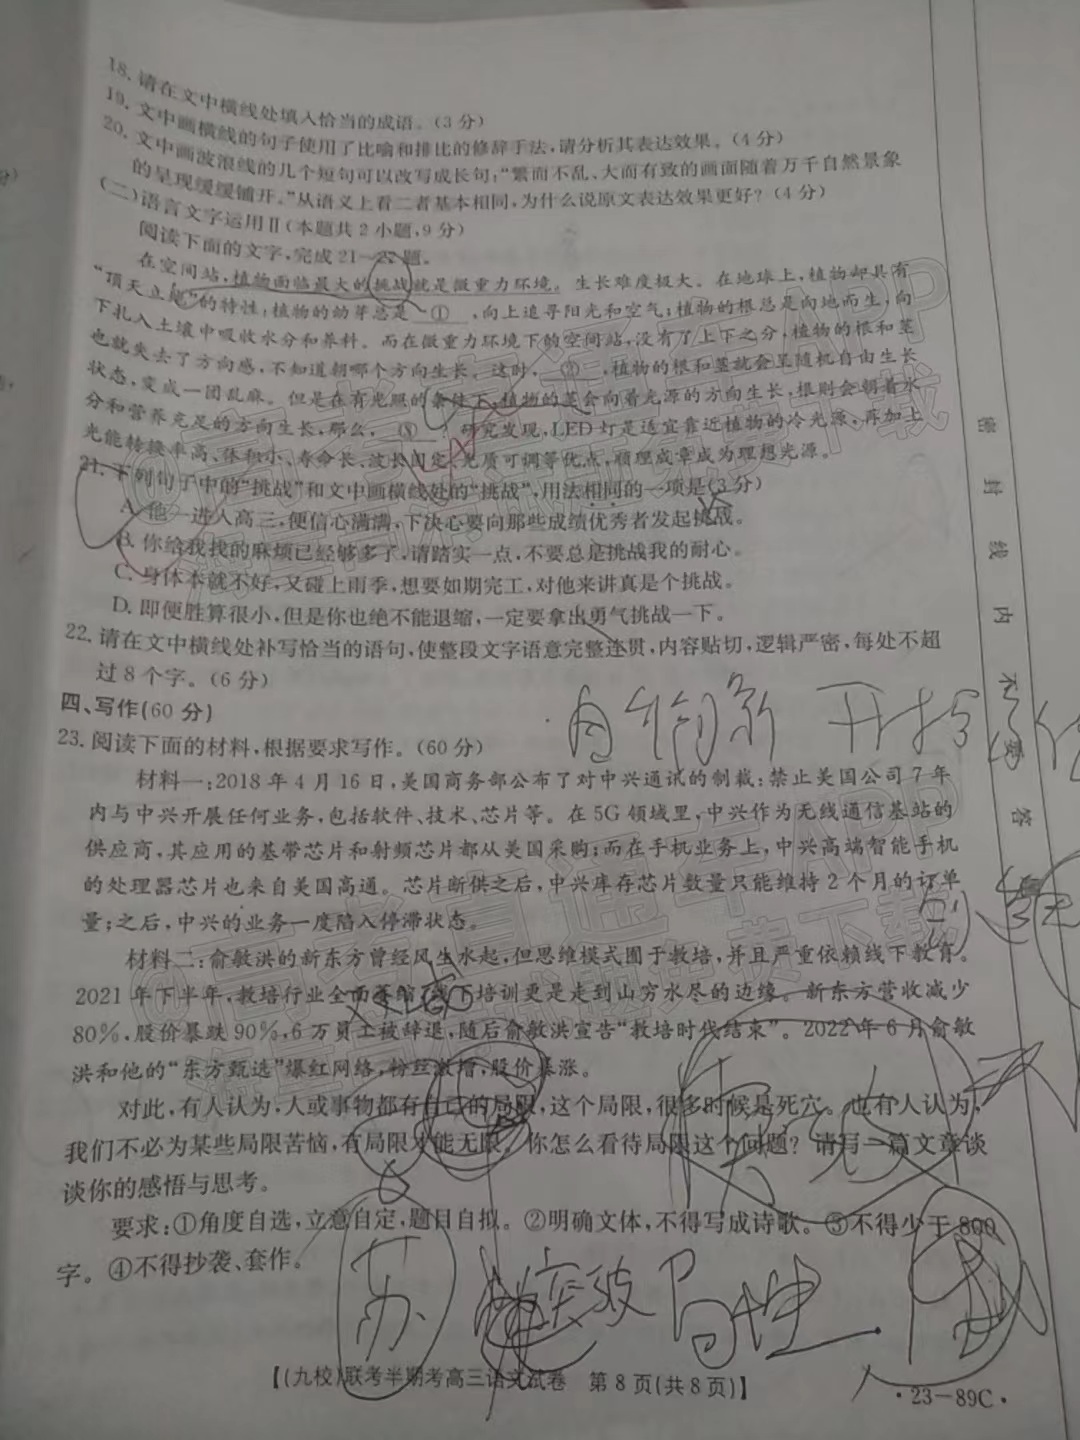 18. 请在文中横线处填入恰当的成语。(3分)
19. 文中画横线的句子使用了比喻和排比的修辞手法,请分析其表达效果。(4分)
20. 文中画波浪线的几个短句可以改写成长句:“繁而不乱、大而有致的画面随着万千自然景象
的呈现缓缓铺开。”从语义上看二者基本相同,为什么说原文表达效果更好?(4分)
(二)语言文字运用Ⅱ(本题共2小题,9分)
阅读下面的文字,完成21—22题。
在空间站,植物面临最大的挑战就是微重力环境。生长难度极大。在地球上,植物却具有
“顶天立地”的特性:植物的幼芽总是 ① ,向上追寻阳光和空气;植物的根总是向地而生,向
下扎入土壤中吸收水分和养料。而在微重力环境下的空间站,没有了上下之分,植物的根和茎
也就失去了方向感,不知道朝哪个方向生长。这时, ② ,植物的根和茎就会呈随机自由生长
状态,变成一团乱麻。但是在有光照的条件下,植物的茎会向着光源的方向生长,根则会朝着水
分和营养充足的方向生长,那么, ③ 。研究发现,LED灯是适宜靠近植物的冷光源,再加上
光能转换率高、体积小、寿命长、波长固定、光质可调等优点,顺理成章成为理想光源。
21. 下列句子中的“挑战”和文中画横线处的“挑战”,用法相同的一项是(3分)
A. 他一进入高三,便信心满满,下决心要向那些成绩优秀者发起挑战。
B. 你给我找的麻烦已经够多了,请踏实一点,不要总是挑战我的耐心。
C. 身体本就不好,又碰上雨季,想要如期完工,对他来讲真是个挑战。
D. 即便胜算很小,但是你也绝不能退缩,一定要拿出勇气挑战一下。
22. 请在文中横线处补写恰当的语句,使整段文字语意完整连贯,内容贴切,逻辑严密,每处不超
过8个字。(6分)
四、写作(60分)
23. 阅读下面的材料,根据要求写作。(60分)
材料一:2018年4月16日,美国商务部公布了对中兴通讯的制裁:禁止美国公司7年
内与中兴开展任何业务,包括软件、技术、芯片等。在5G领域里,中兴作为无线通信基站的
供应商,其应用的基带芯片和射频芯片都从美国采购;而在手机业务上,中兴高端智能手机
的处理器芯片也来自美国高通。芯片断供之后,中兴库存芯片数量只能维持2个月的订单
量;之后,中兴的业务一度陷入停滞状态。
材料二:俞敏洪的新东方曾经风生水起,但思维模式囿于教培,并且严重依赖线下教育。
2021年下半年,教培行业全面萎缩,线下培训更是走到山穷水尽的边缘。新东方营收减少
80%,股价暴跌90%,6万员工被辞退,随后俞敏洪宣告“教培时代结束”。2022年6月俞敏
洪和他的“东方甄选”爆红网络,粉丝激增,股价暴涨。
对此,有人认为,人或事物都有自己的局限,这个局限,很多时候是死穴。也有人认为,
我们不必为某些局限苦恼,有局限才能无限。你怎么看待局限这个问题?请写一篇文章谈
谈你的感悟与思考。
要求:①角度自选,立意自定,题目自拟。②明确文体,不得写成诗歌。③不得少于800
字。④不得抄袭、套作。
苏
突破局
【(九校)联考半期考高三语文试卷 第8页(共8页)】
·23-89C·
密封线内不要答题
@高考直通车APP
海量试题免费下载
@高考直通车APP
海量试题免费下载